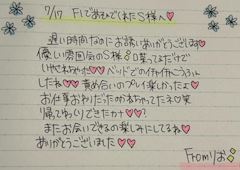 7/17 FiであそんでくれたS様へ♥
遅い時間なのにお誘いありがとうございます♥
優しい雰囲気のS様♪口笑ってるだけで
いやされちゃった♥♥ベッドでのイチャイチャこうふん
したね♥♥責め合いのプレイ楽しかったよ
お仕事おわりだったのねちゃってたネ♡笑
帰ってねっりできたカナ♥♥?
またお会いできるの楽しみにしてるね♥
ありがとうございました♥♥
Fromりお